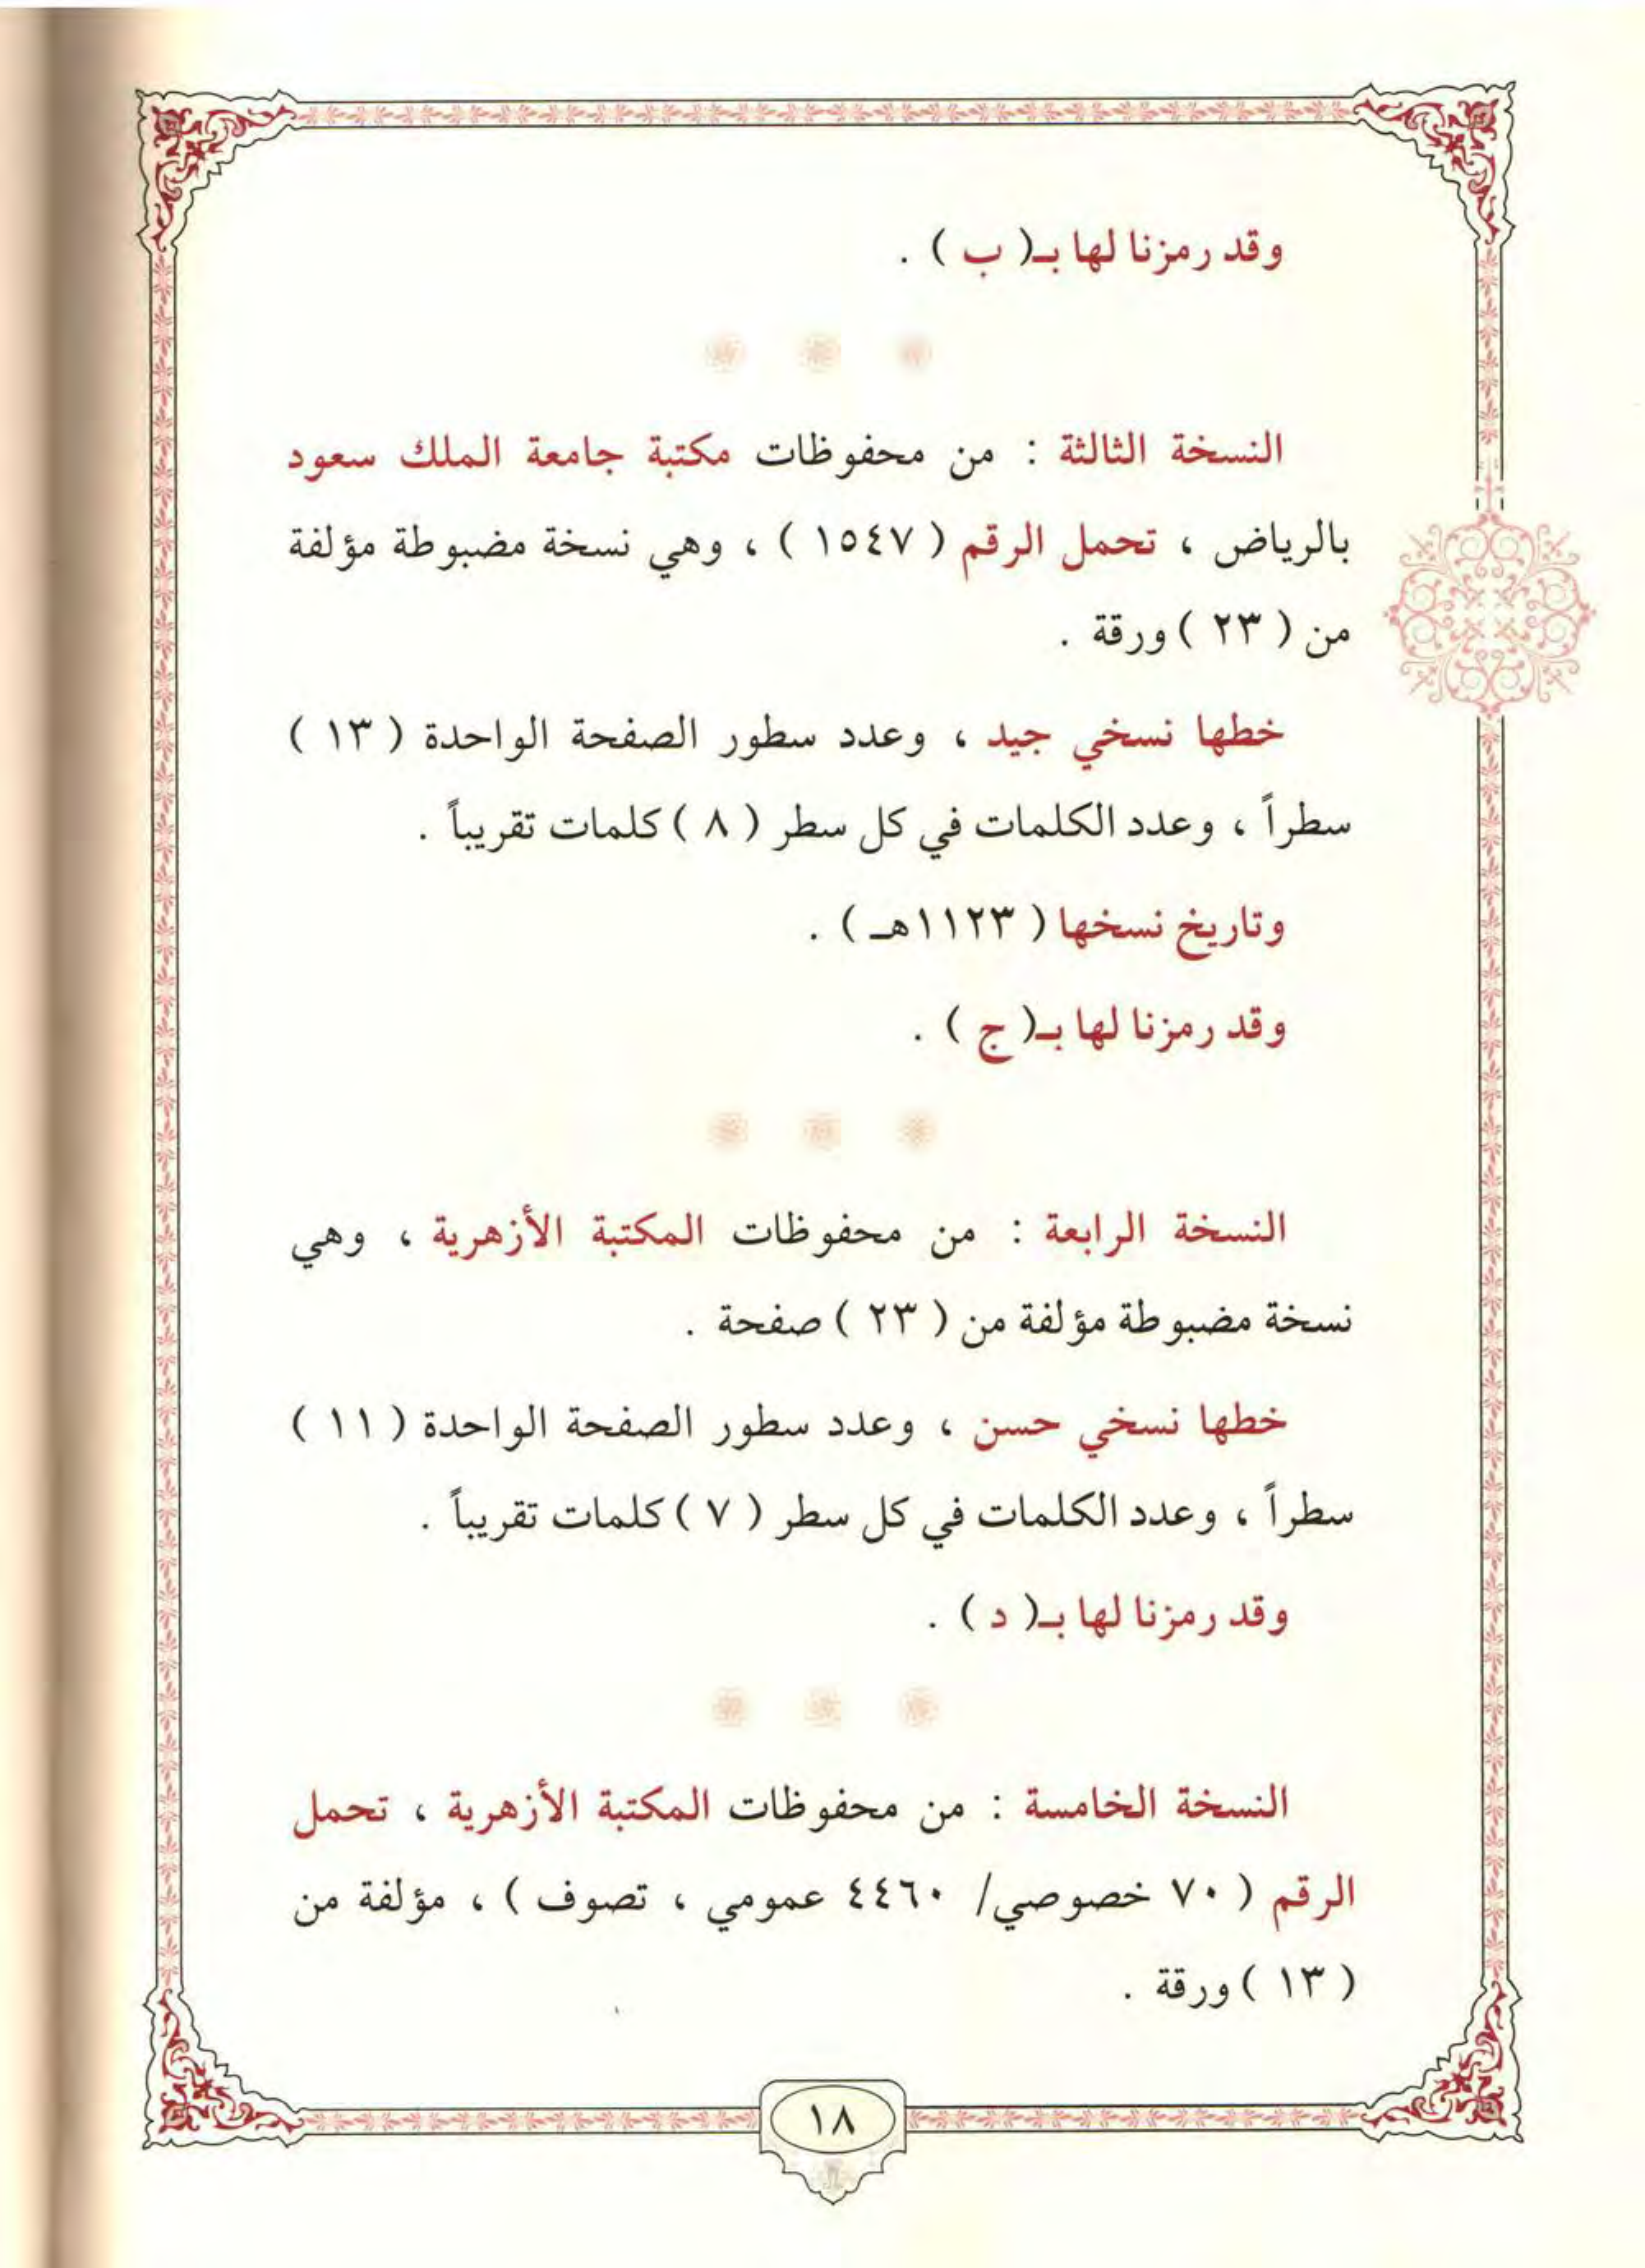 وقد رمزنا لها بـ( ب ) .
النسخة الثالثة : من محفوظات مكتبة جامعة الملك سعود
بالرياض ، تحمل الرقم ( ١٥٤٧ ) ، وهي نسخة مضبوطة مؤلفة
من ( ٢٣ ) ورقة .
خطها نسخي جيد ، وعدد سطور الصفحة الواحدة ( ١٣ )
سطراً ، وعدد الكلمات في كل سطر ( ٨ ) كلمات تقريباً .
وتاريخ نسخها ( ١١٢٣هـ ) .
وقد رمزنا لها بـ( ج ) .
النسخة الرابعة : من محفوظات المكتبة الأزهرية ، وهي
نسخة مضبوطة مؤلفة من ( ٢٣ ) صفحة .
خطها نسخي حسن ، وعدد سطور الصفحة الواحدة ( ١١ )
سطراً ، وعدد الكلمات في كل سطر ( ٧ ) كلمات تقريباً .
وقد رمزنا لها بـ( د ) .
النسخة الخامسة : من محفوظات المكتبة الأزهرية ، تحمل
الرقم ( ٧٠ خصوصي/ ٤٤٦٠ عمومي ، تصوف ) ، مؤلفة من
( ١٣ ) ورقة .
١٨